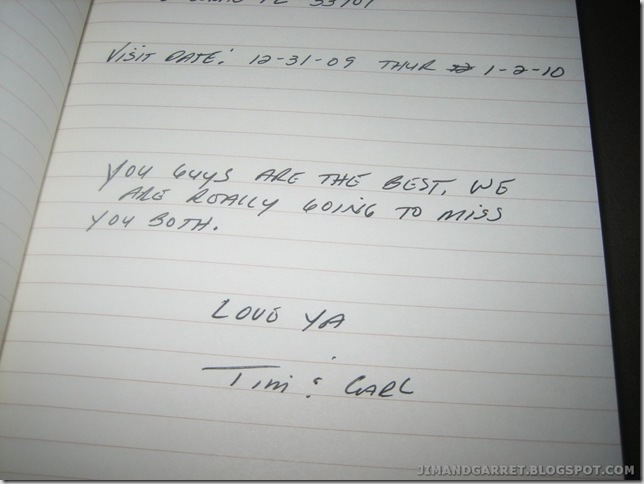 FL 33701
VISIT DATE: 12-31-09 THUR 1-2-10
YOU GUYS ARE THE BEST, WE
ARE REALLY GOING TO MISS
YOU BOTH.
LOVE YA
TIM & CARL
JIMANDGARRET.BLOGSPOT.COM